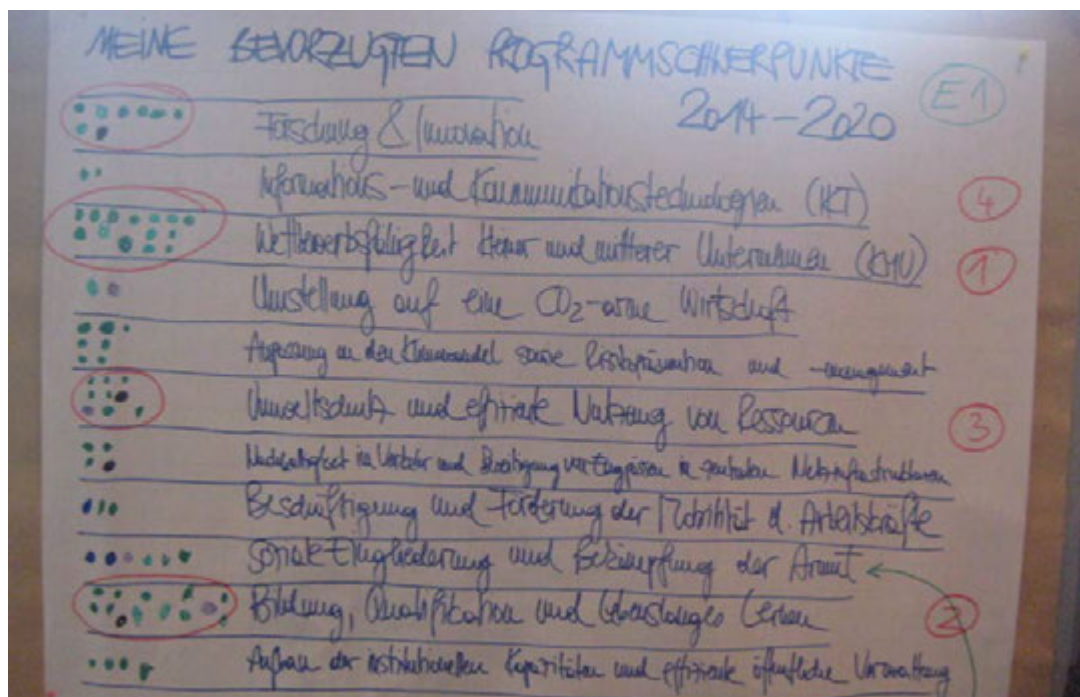 MEINE BEVORZUGTEN PROGRAMMSCHWERPUNKTE
2014-2020
E1
Forschung & Innovation
Informations- und Kommunikationstechnologien (IKT)
4
Wettbewerbsfähigkeit kleiner und mittlerer Unternehmen (KMU)
1
Umstellung auf eine CO2-arme Wirtschaft
Anpassung an den Klimawandel sowie Risikoprävention und -management
Umweltschutz und effiziente Nutzung von Ressourcen
3
Nachhaltigkeit im Verkehr und Beseitigung von Engpässen in zentralen Netzinfrastrukturen
Beschäftigung und Förderung der Mobilität d. Arbeitskräfte
Soziale Eingliederung und Bekämpfung der Armut
Bildung, Qualifikation und lebenslanges Lernen
2
Aufbau der institutionellen Kapazitäten und effiziente öffentliche Verwaltung